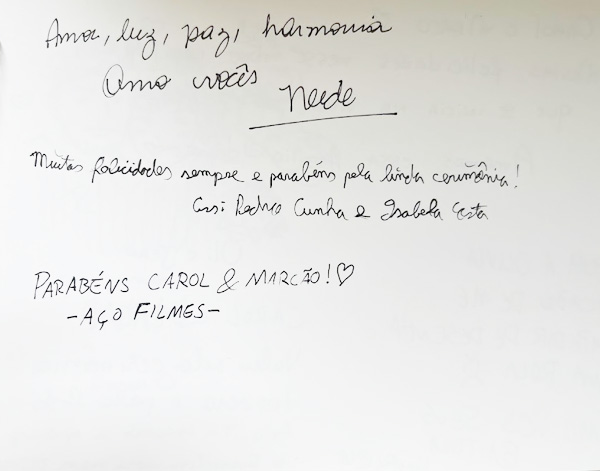 Amor, luz, paz, harmonia
Amo vocês
Neide
Muitas felicidades sempre e parabéns pela linda cerimônia!
Pedro Cunha e Isabela Costa
PARABÉNS CAROL & MARCÃO! ♡
-AÇO FILMES-